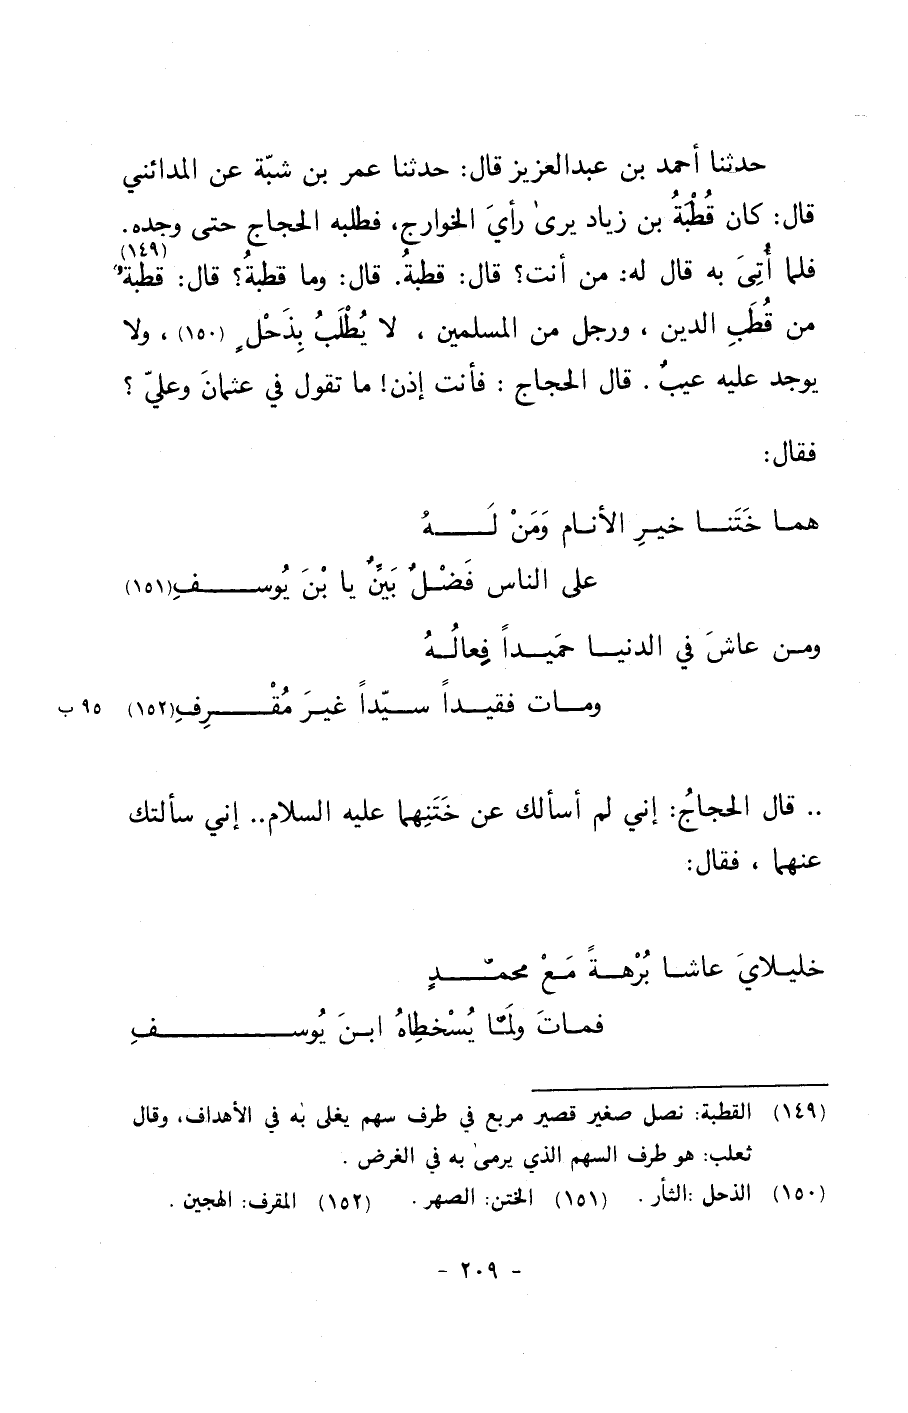 حدثنا أحمد بن عبدالعزيز قال: حدثنا عمر بن شبّة عن المدائني
قال: كان قُطْبَةُ بن زياد يرىٰ رأيَ الخوارج، فطلبه الحجاج حتى وجده.
فلما أُتِىَ به قال له: من أنت؟ قال: قطبةُ. قال: وما قطبةُ؟ قال: قطبةٌ (١٤٩)
من قُطَبِ الدين ، ورجل من المسلمين ، لا يُطْلَبُ بِذَحْلٍ (١٥٠) ، ولا
يوجد عليه عيبٌ . قال الحجاج : فأنت إذن! ما تقول في عثمانَ وعليّ ؟
فقال:
هما خَتَنا خيرِ الأنام وَمَنْ لَهُ
على الناس فَضْلٌ بَيِّنٌ يا بْنَ يُوسفِ(١٥١)
ومن عاشَ في الدنيا حَميداً فِعالُهُ
ومات فقيداً سيّداً غيرَ مُقْرِفِ(١٥٢) ٩٥ ب
.. قال الحجاجُ: إني لم أسألك عن خَتَنِهما عليه السلام.. إني سألتك
عنهما ، فقال:
خليلايَ عاشا بُرْهةً مَعْ محمّدٍ
فماتَ ولَمّا يُسْخطِاهُ ابنَ يُوسفِ
(١٤٩) القطبة: نصل صغير قصير مربع في طرف سهم يغلى به في الأهداف، وقال
ثعلب: هو طرف السهم الذي يرمىٰ به في الغرض .
(١٥٠) الذحل :الثأر . (١٥١) الختن: الصهر . (١٥٢) المقرف: الهجين .
- ٢٠٩ -